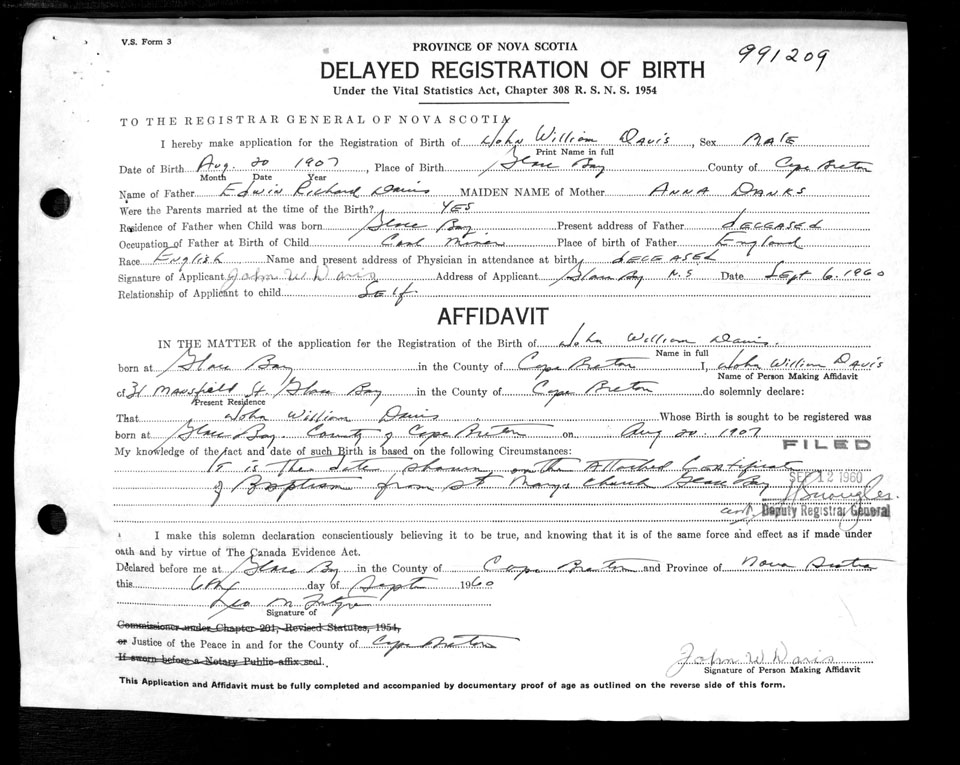 V.S. Form 3
991209
PROVINCE OF NOVA SCOTIA
DELAYED REGISTRATION OF BIRTH
Under the Vital Statistics Act, Chapter 308 R. S. N. S. 1954
TO THE REGISTRAR GENERAL OF NOVA SCOTIA
I hereby make application for the Registration of Birth of John William Davis, Sex MALE
Print Name in full
Date of Birth Aug. 20 1907, Place of Birth Glace Bay County of Cape Breton
Month Date Year
Name of Father Edwin Richard Davis MAIDEN NAME of Mother ANNA DANKS
Were the Parents married at the time of the Birth? YES
Residence of Father when Child was born Glace Bay Present address of Father deceased
Occupation of Father at Birth of Child Coal Miner Place of birth of Father England
Race English Name and present address of Physician in attendance at birth deceased
Signature of Applicant John W Davis Address of Applicant Glace Bay N.S Date Sept 6. 1960
Relationship of Applicant to child Self.
AFFIDAVIT
IN THE MATTER of the application for the Registration of the Birth of John William Davis.
Name in full
born at Glace Bay in the County of Cape Breton I, John William Davis
Name of Person Making Affidavit
of 31 Mansfield St. Glace Bay in the County of Cape Breton do solemnly declare:
Present Residence
That John William Davis Whose Birth is sought to be registered was
born at Glace Bay. County of Cape Breton on Aug 20. 1907
FILED
My knowledge of the fact and date of such Birth is based on the following Circumstances:
It is the date shown on the Attached Certificate
SEP 12 1960
of Baptism from St Marys Church Glace Bay
Deputy Registrar General
I make this solemn declaration conscientiously believing it to be true, and knowing that it is of the same force and effect as if made under
oath and by virtue of The Canada Evidence Act.
Declared before me at Glace Bay in the County of Cape Breton and Province of Nova Scotia
this 6th day of Sept 1960
Leo
Signature of
Commissioner under Chapter 201, Revised Statutes, 1954,
or Justice of the Peace in and for the County of Cape Breton
If sworn before a Notary Public affix seal.
John W Davis
Signature of Person Making Affidavit
This Application and Affidavit must be fully completed and accompanied by documentary proof of age as outlined on the reverse side of this form.